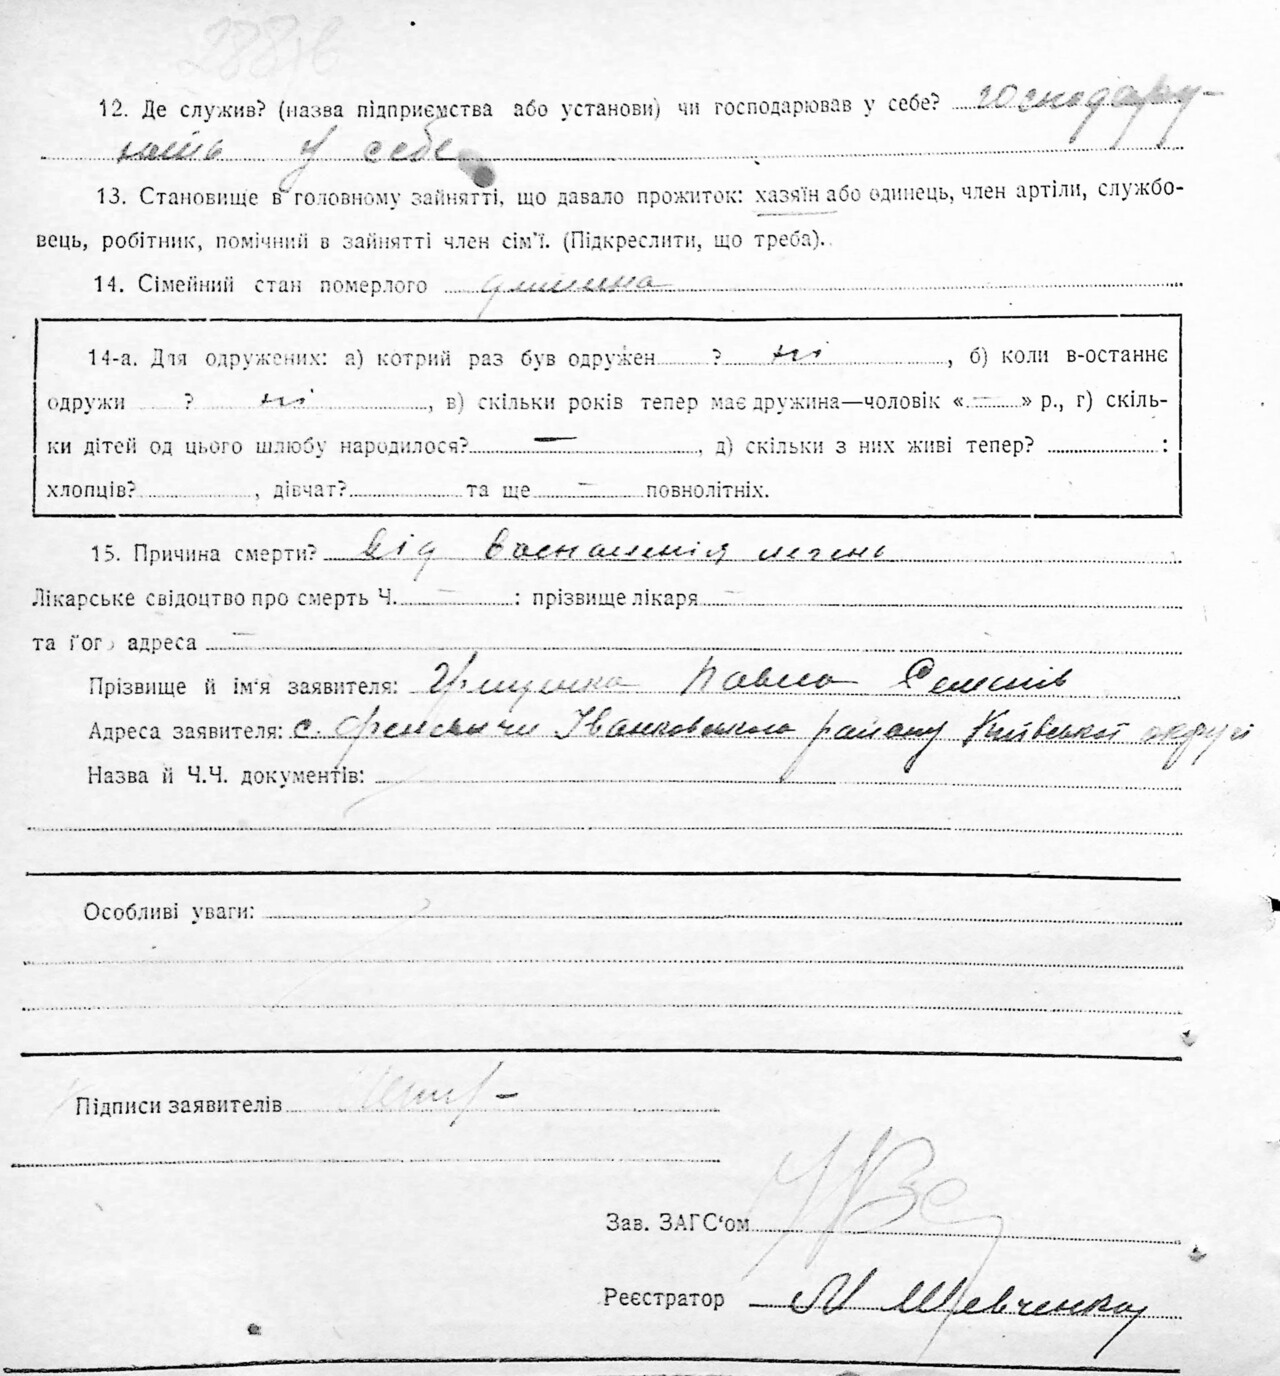 12. Де служив? (назва підприємства або установи) чи господарював у себе? господару-
ють у себе
13. Становище в головному зайнятті, що давало прожиток: хазяїн або одинець, член артіли, службо-
вець, робітник, помічний в зайнятті член сім'ї. (Підкреслити, що треба).
14. Сімейний стан померлого дитина
14-а. Для одружених: а) котрий раз був одружен ? ні , б) коли в-останнє
одружи ? ні , в) скільки років тепер має дружина—чоловік « — » р., г) скіль-
ки дітей од цього шлюбу народилося? — , д) скільки з них живі тепер? :
хлопців? , дівчат? та ще — повнолітніх.
15. Причина смерти? від воспаленія легень
Лікарське свідоцтво про смерть Ч. — : прізвище лікаря —
та його адреса —
Прізвище й ім'я заявителя: Павло Семенів
Адреса заявителя: с. Феневичи Іванковського району Київської округи
Назва й Ч.Ч. документів:
Особливі уваги:
Підписи заявителів
Зав. ЗАГС'ом
Реєстратор М Шевченко